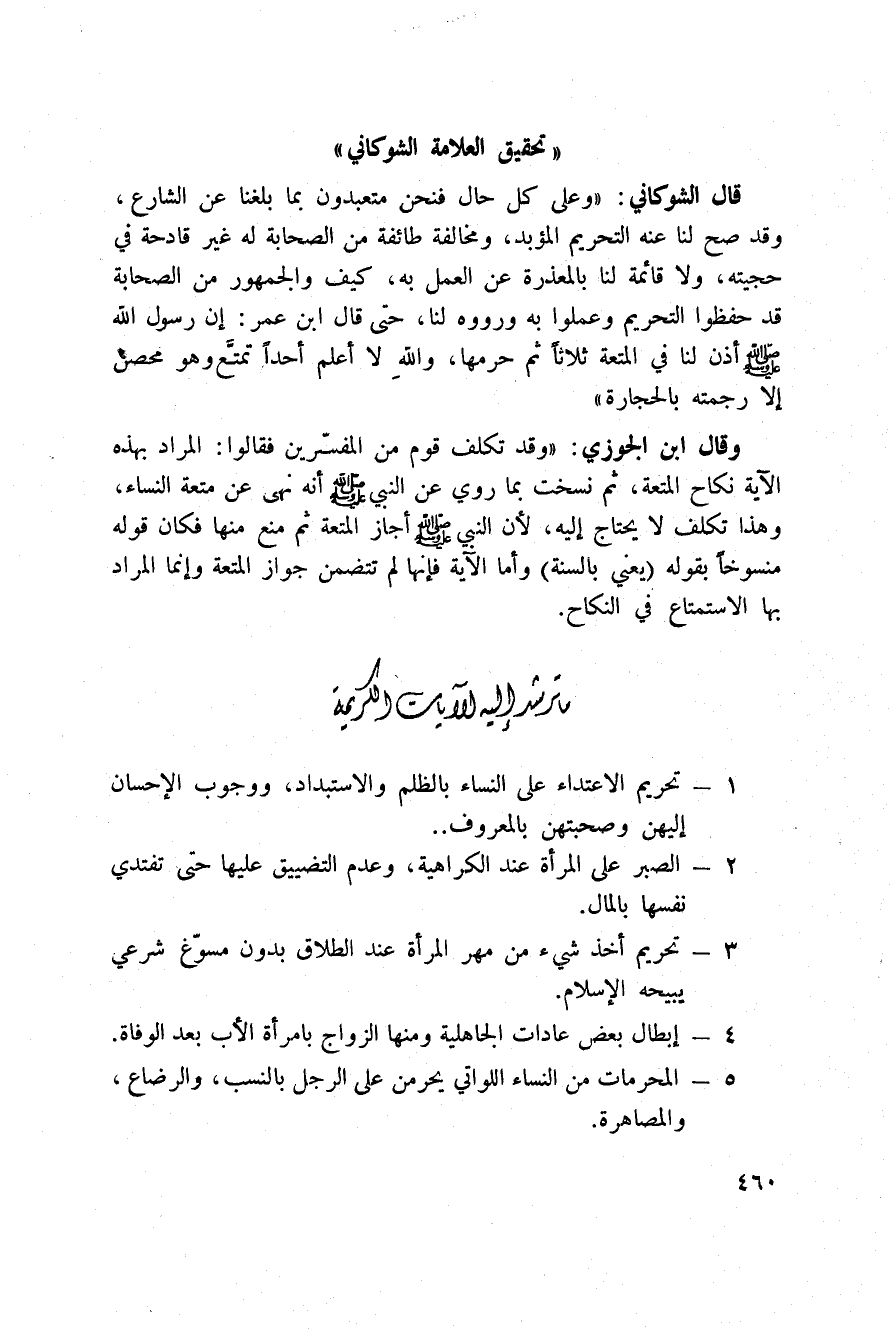 « تحقيق العلامة الشوكاني »
قال الشوكاني : «وعلى كل حال فنحن متعبدون بما بلغنا عن الشارع ،
وقد صح لنا عنه التحريم المؤبد، ومخالفة طائفة من الصحابة له غير قادحة في
حجيته، ولا قائمة لنا بالمعذرة عن العمل به، كيف والجمهور من الصحابة
قد حفظوا التحريم وعملوا به ورووه لنا، حتّى قال ابن عمر : إن رسول الله
ﷺ أذن لنا في المتعة ثلاثاً ثم حرمها، واللّهِ لا أعلم أحداً تمتَّع وهو محصنٌ
إلا رجمته بالحجارة»
وقال ابن الجوزي : «وقد تكلف قوم من المفسّرين فقالوا : المراد بهذه
الآية نكاح المتعة، ثم نسخت بما روي عن النبي ﷺ أنه نهى عن متعة النساء،
وهذا تكلف لا يحتاج إليه، لأن النبي ﷺ أجاز المتعة ثم منع منها فكان قوله
منسوخاً بقوله (يعني بالسنة) وأما الآية فإنها لم تتضمن جواز المتعة وإنما المراد
بها الاستمتاع في النكاح.
ما ترشد إليه الآيات الكريمة
١ – تحريم الاعتداء على النساء بالظلم والاستبداد، ووجوب الإحسان
إليهن وصحبتهن بالمعروف..
٢ – الصبر على المرأة عند الكراهية، وعدم التضييق عليها حتّى تفتدي
نفسها بالمال.
٣ – تحريم أخذ شيء من مهر المرأة عند الطلاق بدون مسوّغ شرعي
يبيحه الإسلام.
٤ – إبطال بعض عادات الجاهلية ومنها الزواج بامرأة الأب بعد الوفاة.
٥ – المحرمات من النساء اللواتي يحرمن على الرجل بالنسب، والرضاع ،
والمصاهرة.
٤٦٠